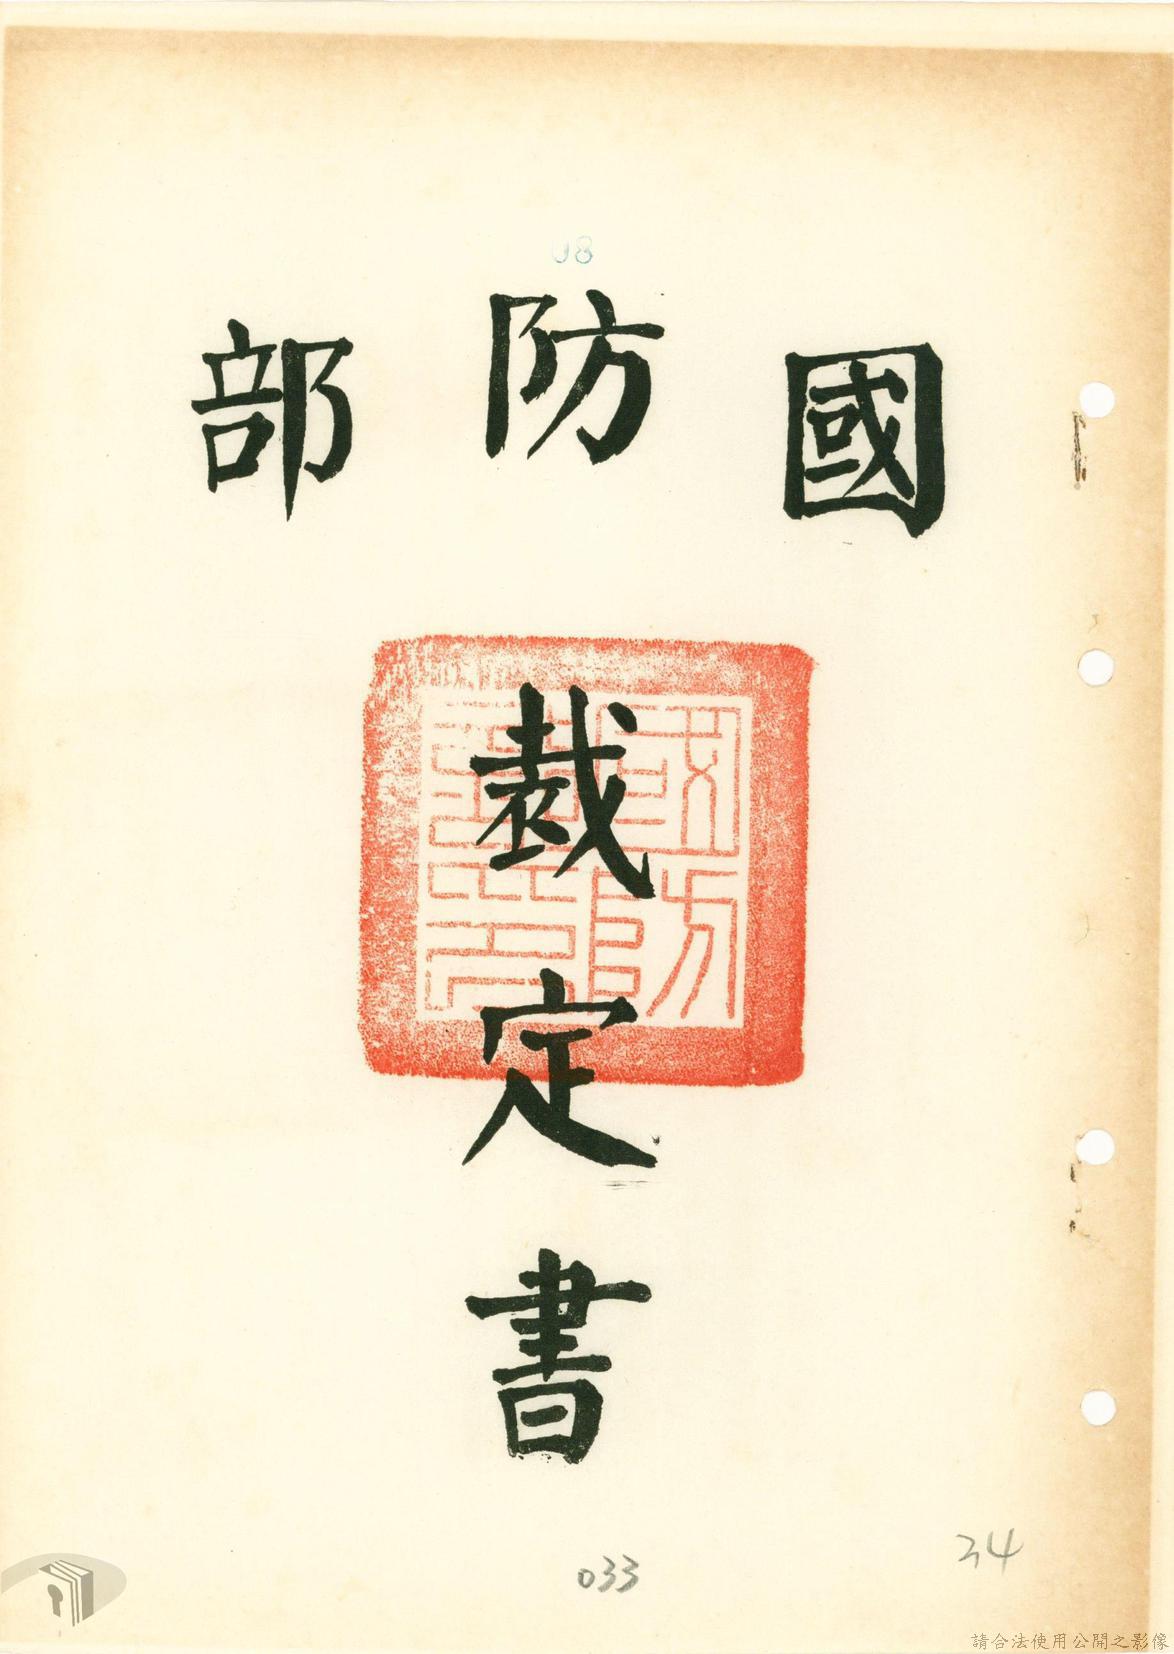 08
國防部
裁定書
033
34
請合法使用公開之影像